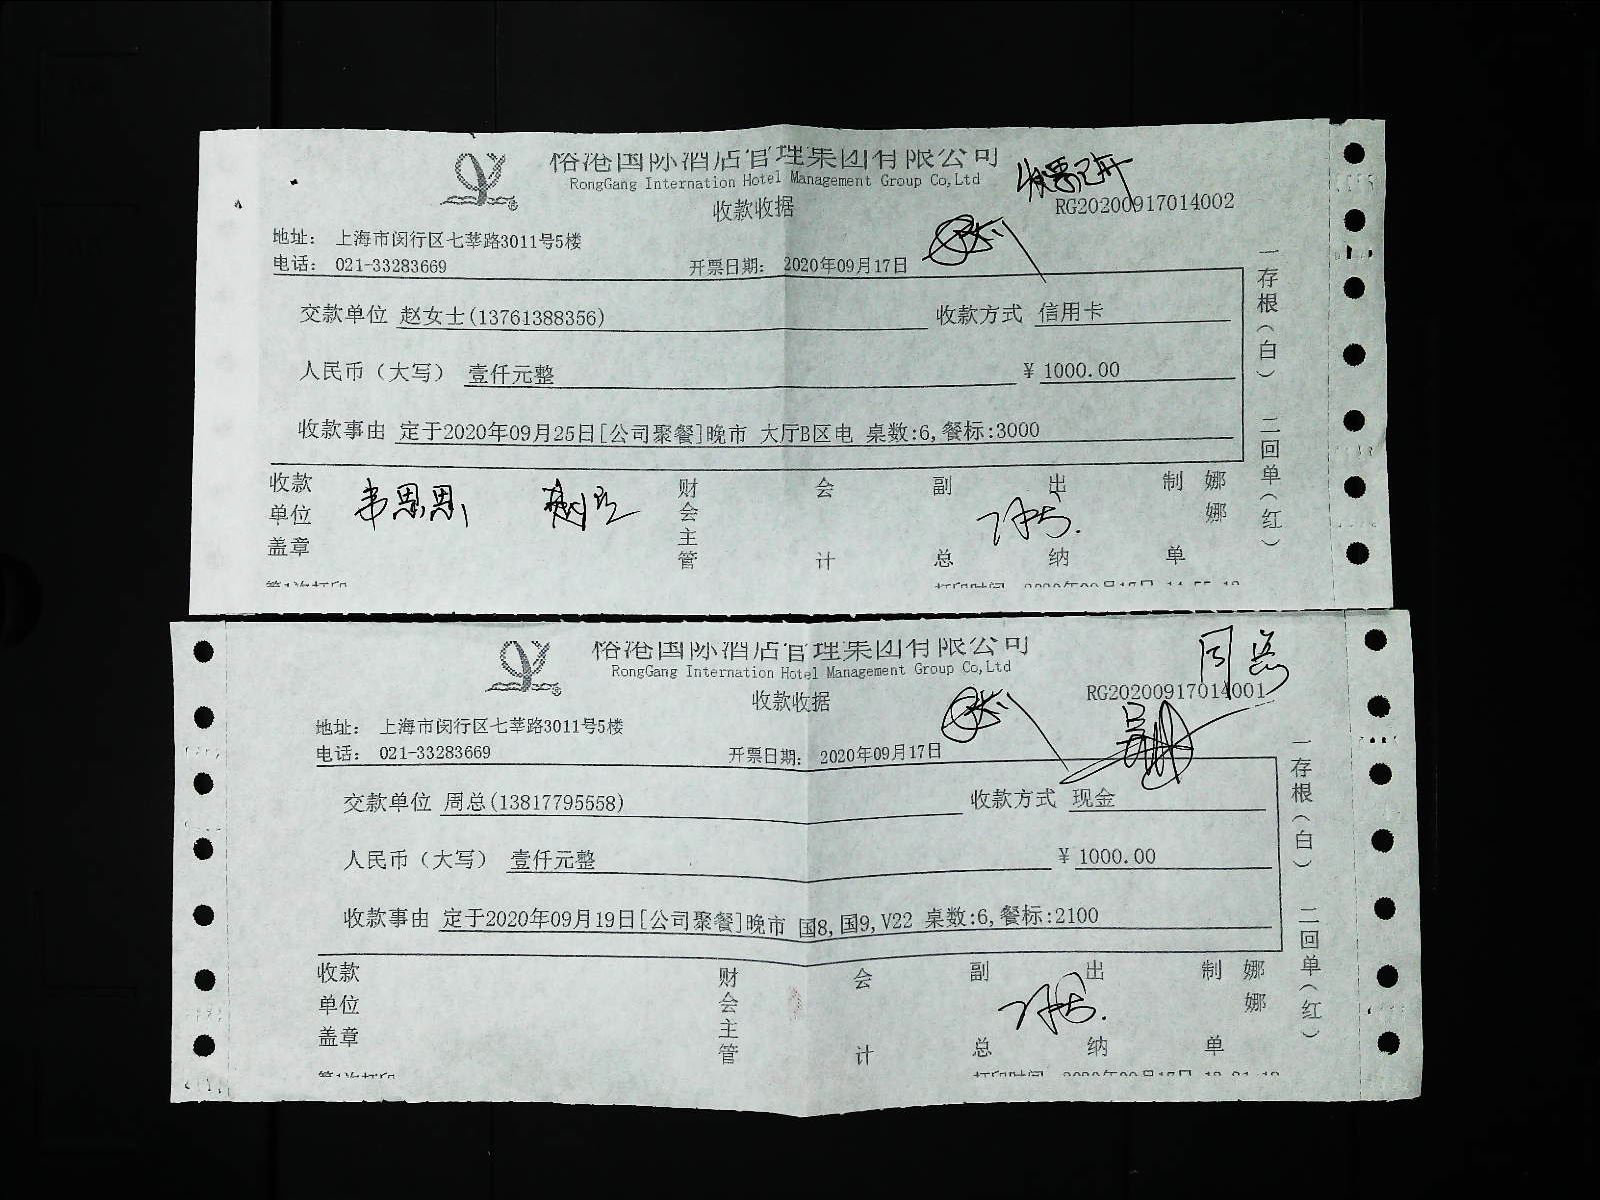 裕港国际酒店管理集团有限公司
RongGang Internation Hotel Management Group Co,Ltd
发票已开
收款收据
RG20200917014002
地址： 上海市闵行区七莘路3011号5楼
电话： 021-33283669 开票日期： 2020年09月17日
交款单位 赵女士(13761388356) 收款方式 信用卡
人民币（大写） 壹仟元整 ¥ 1000.00
收款事由 定于2020年09月25日[公司聚餐]晚市 大厅B区电 桌数:6,餐标:3000
一存根（白） 二回单（红）
收款单位盖章 韦思思 财会主管 会计 副总 出纳 制单 娜娜
第1次打印 打印时间 2020年09月17日
裕港国际酒店管理集团有限公司
RongGang Internation Hotel Management Group Co,Ltd
收款收据
RG20200917014001
地址： 上海市闵行区七莘路3011号5楼
电话： 021-33283669 开票日期： 2020年09月17日
交款单位 周总(13817795558) 收款方式 现金
人民币（大写） 壹仟元整 ¥ 1000.00
收款事由 定于2020年09月19日[公司聚餐]晚市 国8,国9,V22 桌数:6,餐标:2100
一存根（白） 二回单（红）
收款单位盖章 财会主管 会计 副总 出纳 制单 娜娜
第1次打印 打印时间 2020年09月17日